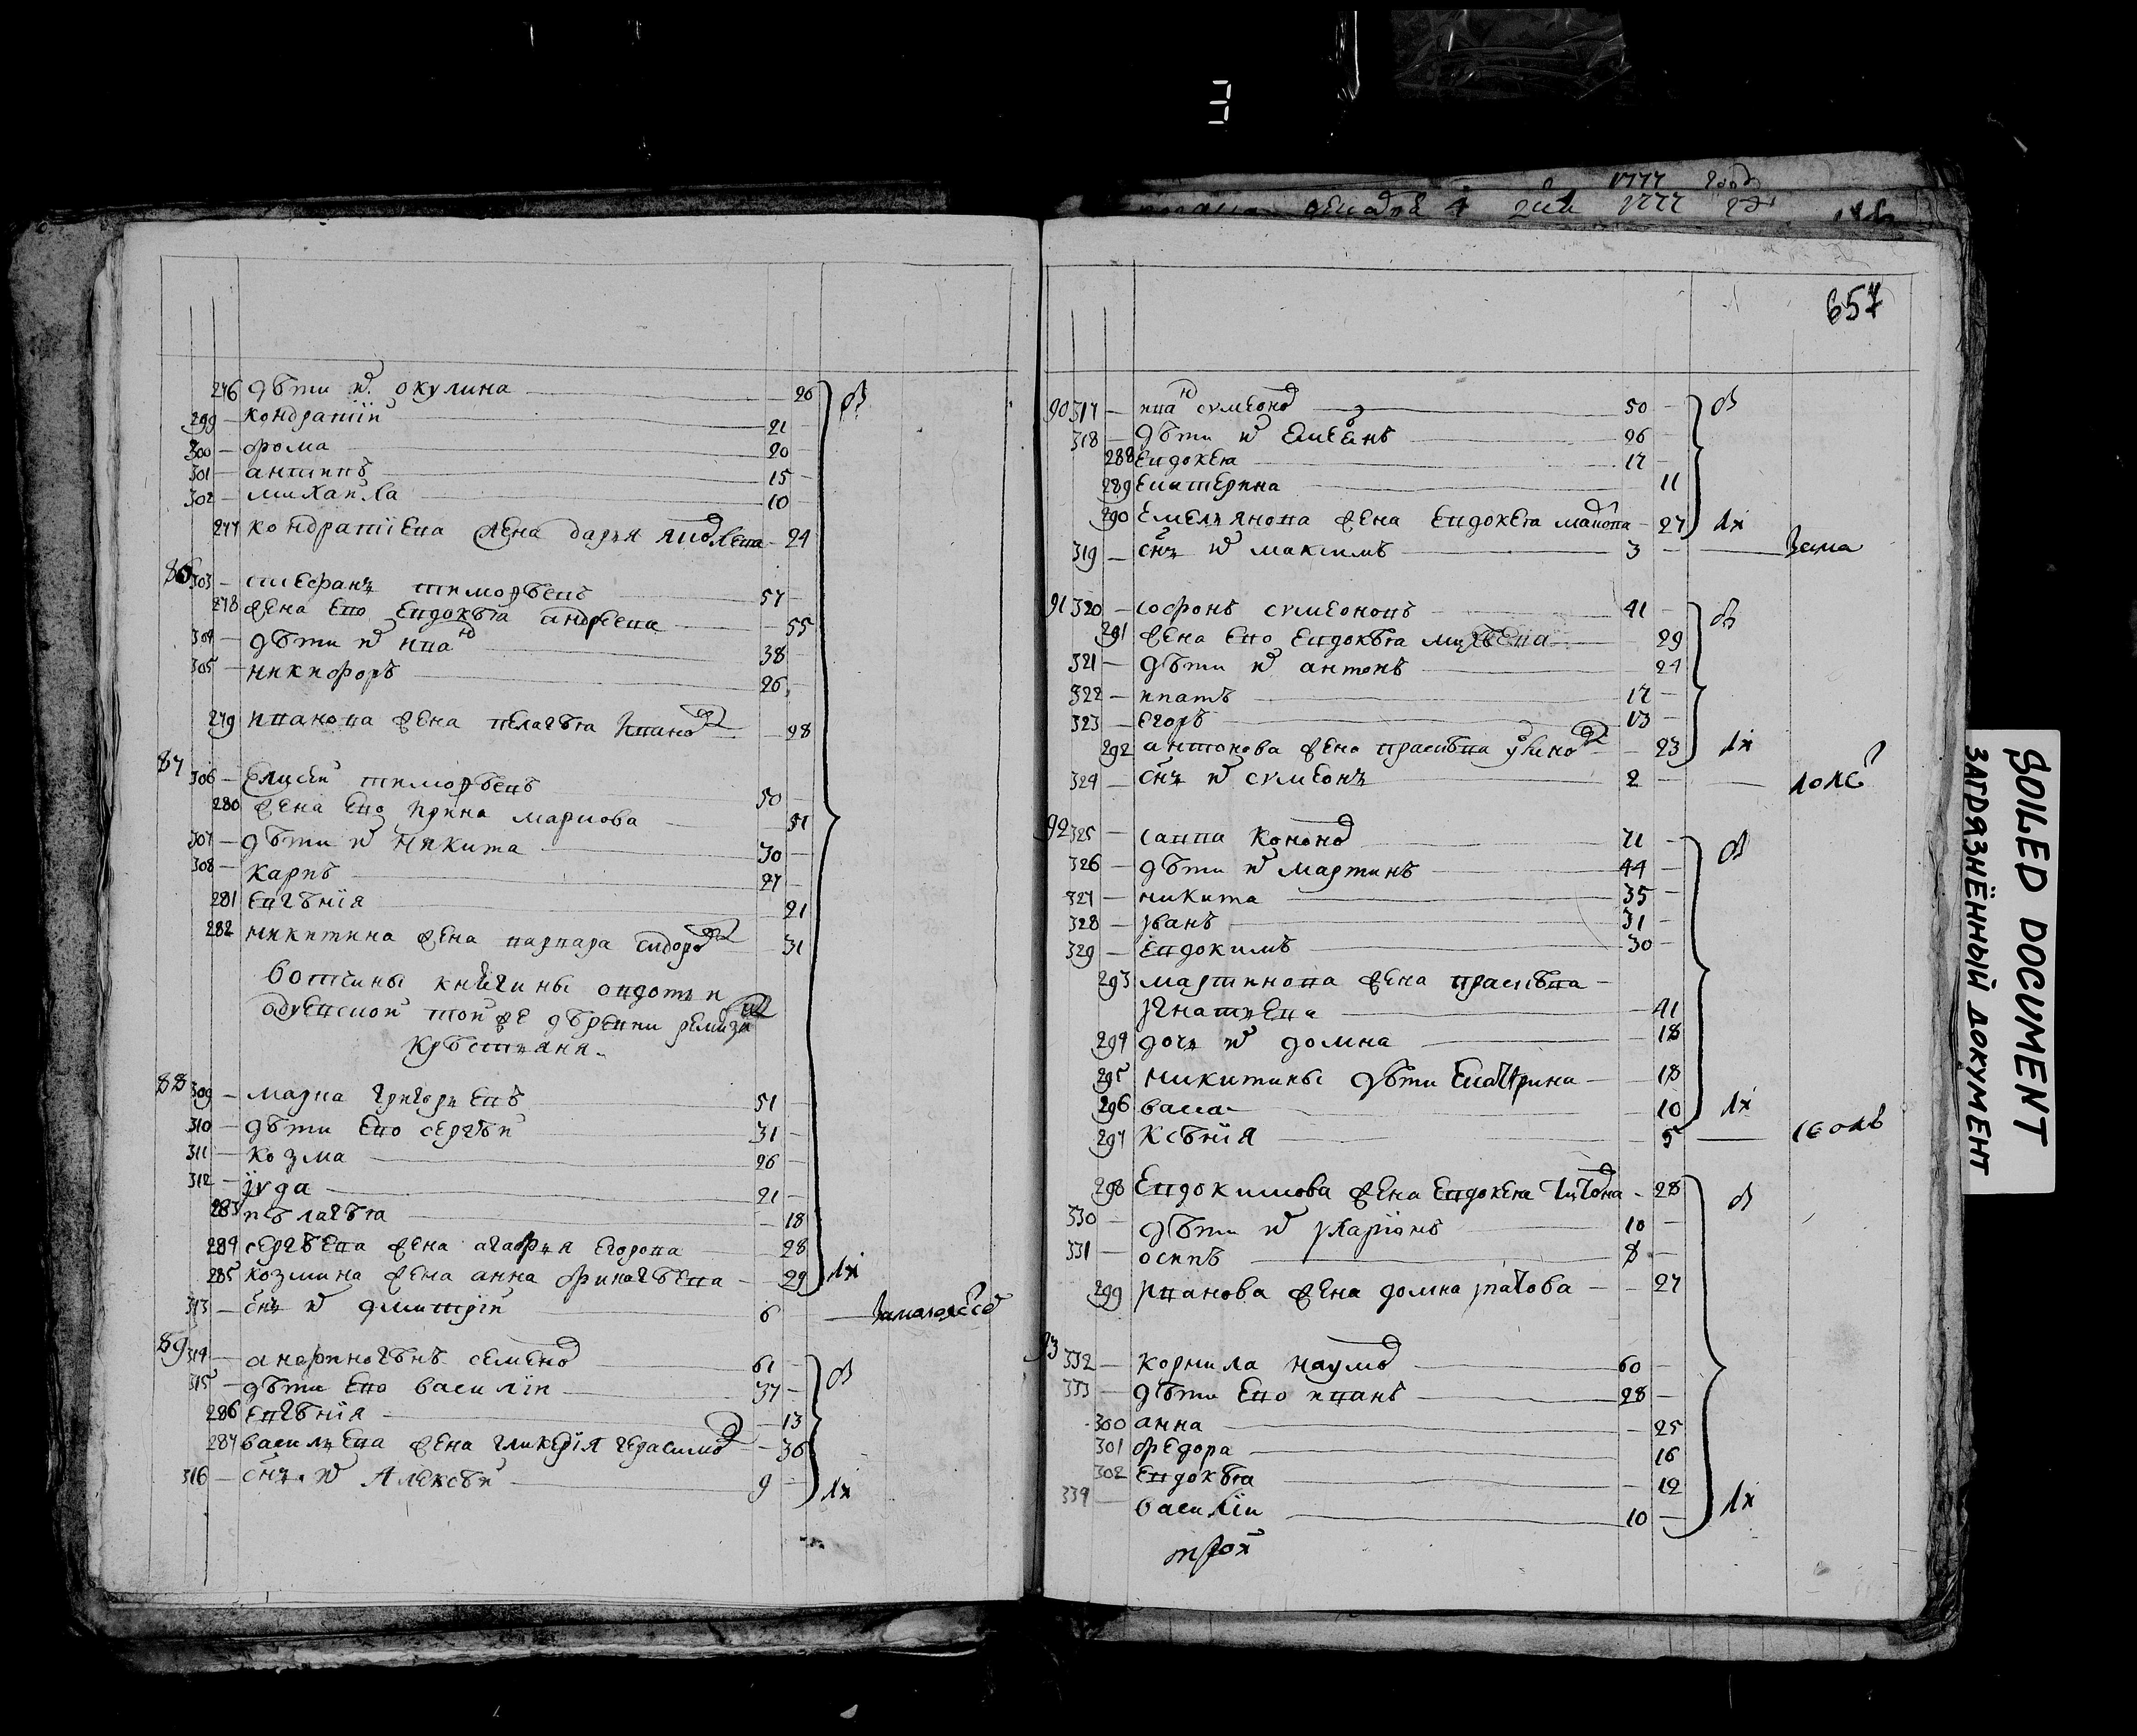 276 дѣти и͠ окулина 26
299 кондратїй 21
300 фома 20
301 антипъ 15
302 михаила 10
277 кондратїева жена дарья 24
86 303 стефанъ тимофѣевъ 57
278 жена ево евдокѣя андреева 55
304 дѣти и͠ иванъ 38
305 никифоръ 26
279 иванова жена пелагѣя иванова 28
87 306 Елисей тимофѣевъ 50
280 жена ево ирина маркова 51
307 дѣти и͠ никита 30
308 карпъ 27
281 евгѣнїя 21
282 никитина жена варвара сидоро 31
вотчины княгини авдотьи
той же дѣревни
крѣстьяня
88 309 марка григорьевъ 51
310 дѣти ево сергѣй 31
311 козма 26
312 іуда 21
283 пѣлагѣя 18
284 сергѣева жена агафья егорова 28
285 козмина жена анна финагѣева 29
313 сн҃ъ и͠ дмитрїй 6
89 314 анфиногѣнъ семено 61
315 дѣти ево василїй 37
286 евгѣнїя 13
287 васильева жена гликерїя герасимо 36
316 сн҃ъ и͠ Алексѣй 9
1777 год
4 дня 1777
657
90 317 иванъ сумеоно 50
318 дѣти и͠ емелянъ 26
288 евдокея 17
289 екатерина 11
290 емельянова жена евдокея 27
319 сн҃ъ и͠ максимъ 3
91 320 софонъ сумеоновъ 41
291 жена ево евдокѣя 29
321 дѣти и͠ антонъ 24
322 игнатъ 17
323 егоръ 13
292 антонова жена прасковья 23
324 сн҃ъ и͠ сумеонъ 2
92 325 савва конono 71
326 дѣти и͠ мартинъ 44
327 никита 35
328 иванъ 31
329 евдокимъ 30
293 мартинова жена прасковья
игнатьева 41
294 дочь и͠ домна 18
295 никитины дѣти екатерина 18
296 васса 10
297 ксѣнїя 5
298 Евдокимова жена евдокея 28
330 дѣти и͠ иларїонъ 10
331 осипъ 8
299 иванова жена домна 27
93 332 корнила наумо 60
333 дѣти ево иванъ 28
300 анна 25
301 федора 16
302 евдокѣя 12
334 василїй 10
SOILED DOCUMENT
ЗАГРЯЗНЁННЫЙ ДОКУМЕНТ